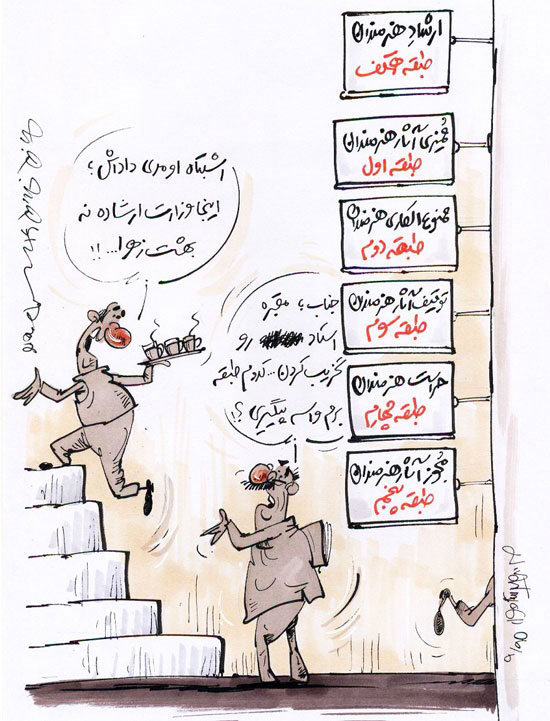 ارشاد هنرمندان
طبقه همکف
ممیزی آثار هنرمندان
طبقه اول
ممنوع الکاری هنرمندان
طبقه دوم
توقیف آثار هنرمندان
طبقه سوم
حراست هنرمندان
طبقه چهارم
مجوز آثار هنرمندان
طبقه پنجم
اشتباه اومدی داداش؛
اینجا وزارت ارشاده نه
بهشت زهرا...!!
جناب؛ مقبره
استاد رو
تخریب کردن... کدوم طبقه
برم واسه پیگیری؟!